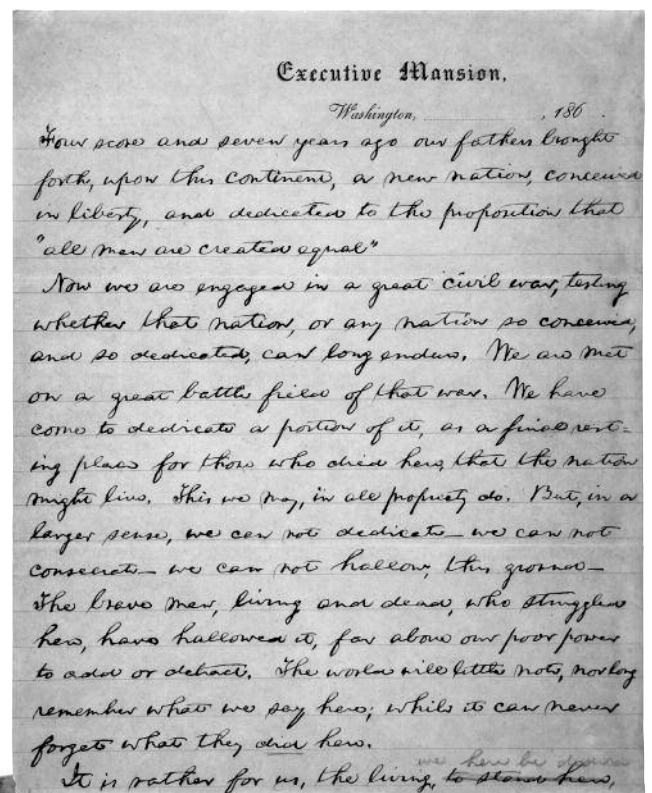 Executive Mansion,
Washington, , 186 .
Four score and seven years ago our fathers brought
forth, upon this continent, a new nation, conceived
in liberty, and dedicated to the proposition that
"all men are created equal"
Now we are engaged in a great civil war, testing
whether that nation, or any nation so conceived,
and so dedicated, can long endure. We are met
on a great battle field of that war. We have
come to dedicate a portion of it, as a final rest=
ing place for those who died here, that the nation
might live. This we may, in all propriety do. But, in a
larger sense, we can not dedicate — we can not
consecrate — we can not hallow, this ground —
The brave men, living and dead, who struggled
here, have hallowed it, far above our poor power
to add or detract. The world will little note, nor long
remember what we say here; while it can never
forget what they did here.
we here be
It is rather for us, the living, to stand here,